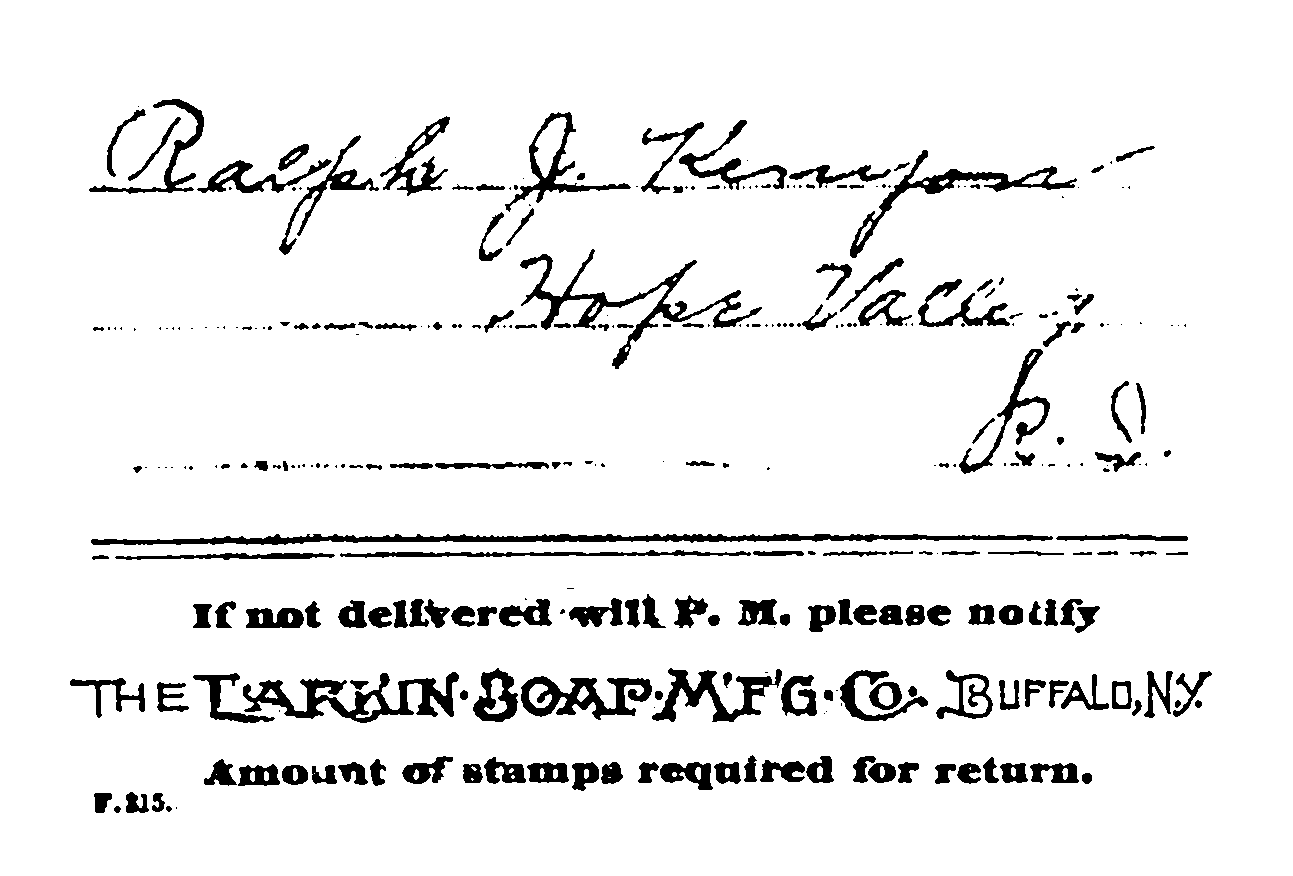 Ralph J. Kenyon
Hope Valley
R. I.
If not delivered will P. M. please notify
THE LARKIN SOAP M'F'G CO. BUFFALO, N.Y.
Amount of stamps required for return.
F. 215.